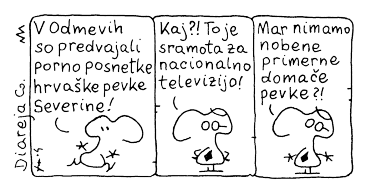 Diareja Co.
V Odmevih
so predvajali
porno posnetke
hrvaške pevke
Severine!
Kaj?! To je
sramota za
nacionalno
televizijo!
Mar nimamo
nobene
primerne
domače
pevke?!